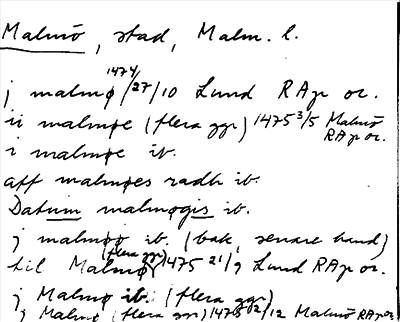 Malmö, stad, Malm. l.
j malmø 1474 27/10 Lund RAp or.
ii malmøe (flera ggr) 1475 3/5 Malmö RAp or.
i malmøe ib.
aff malmøes radh ib.
Datum malmøgis ib.
j malmøø ib. (bak, senare hand)
til Malmø (flera ggr) 1475 21/9 Lund RAp or.
j Malmø ib. (flera ggr)
j Malmø (flera ggr) 1475 /12 Malmö RAp or.